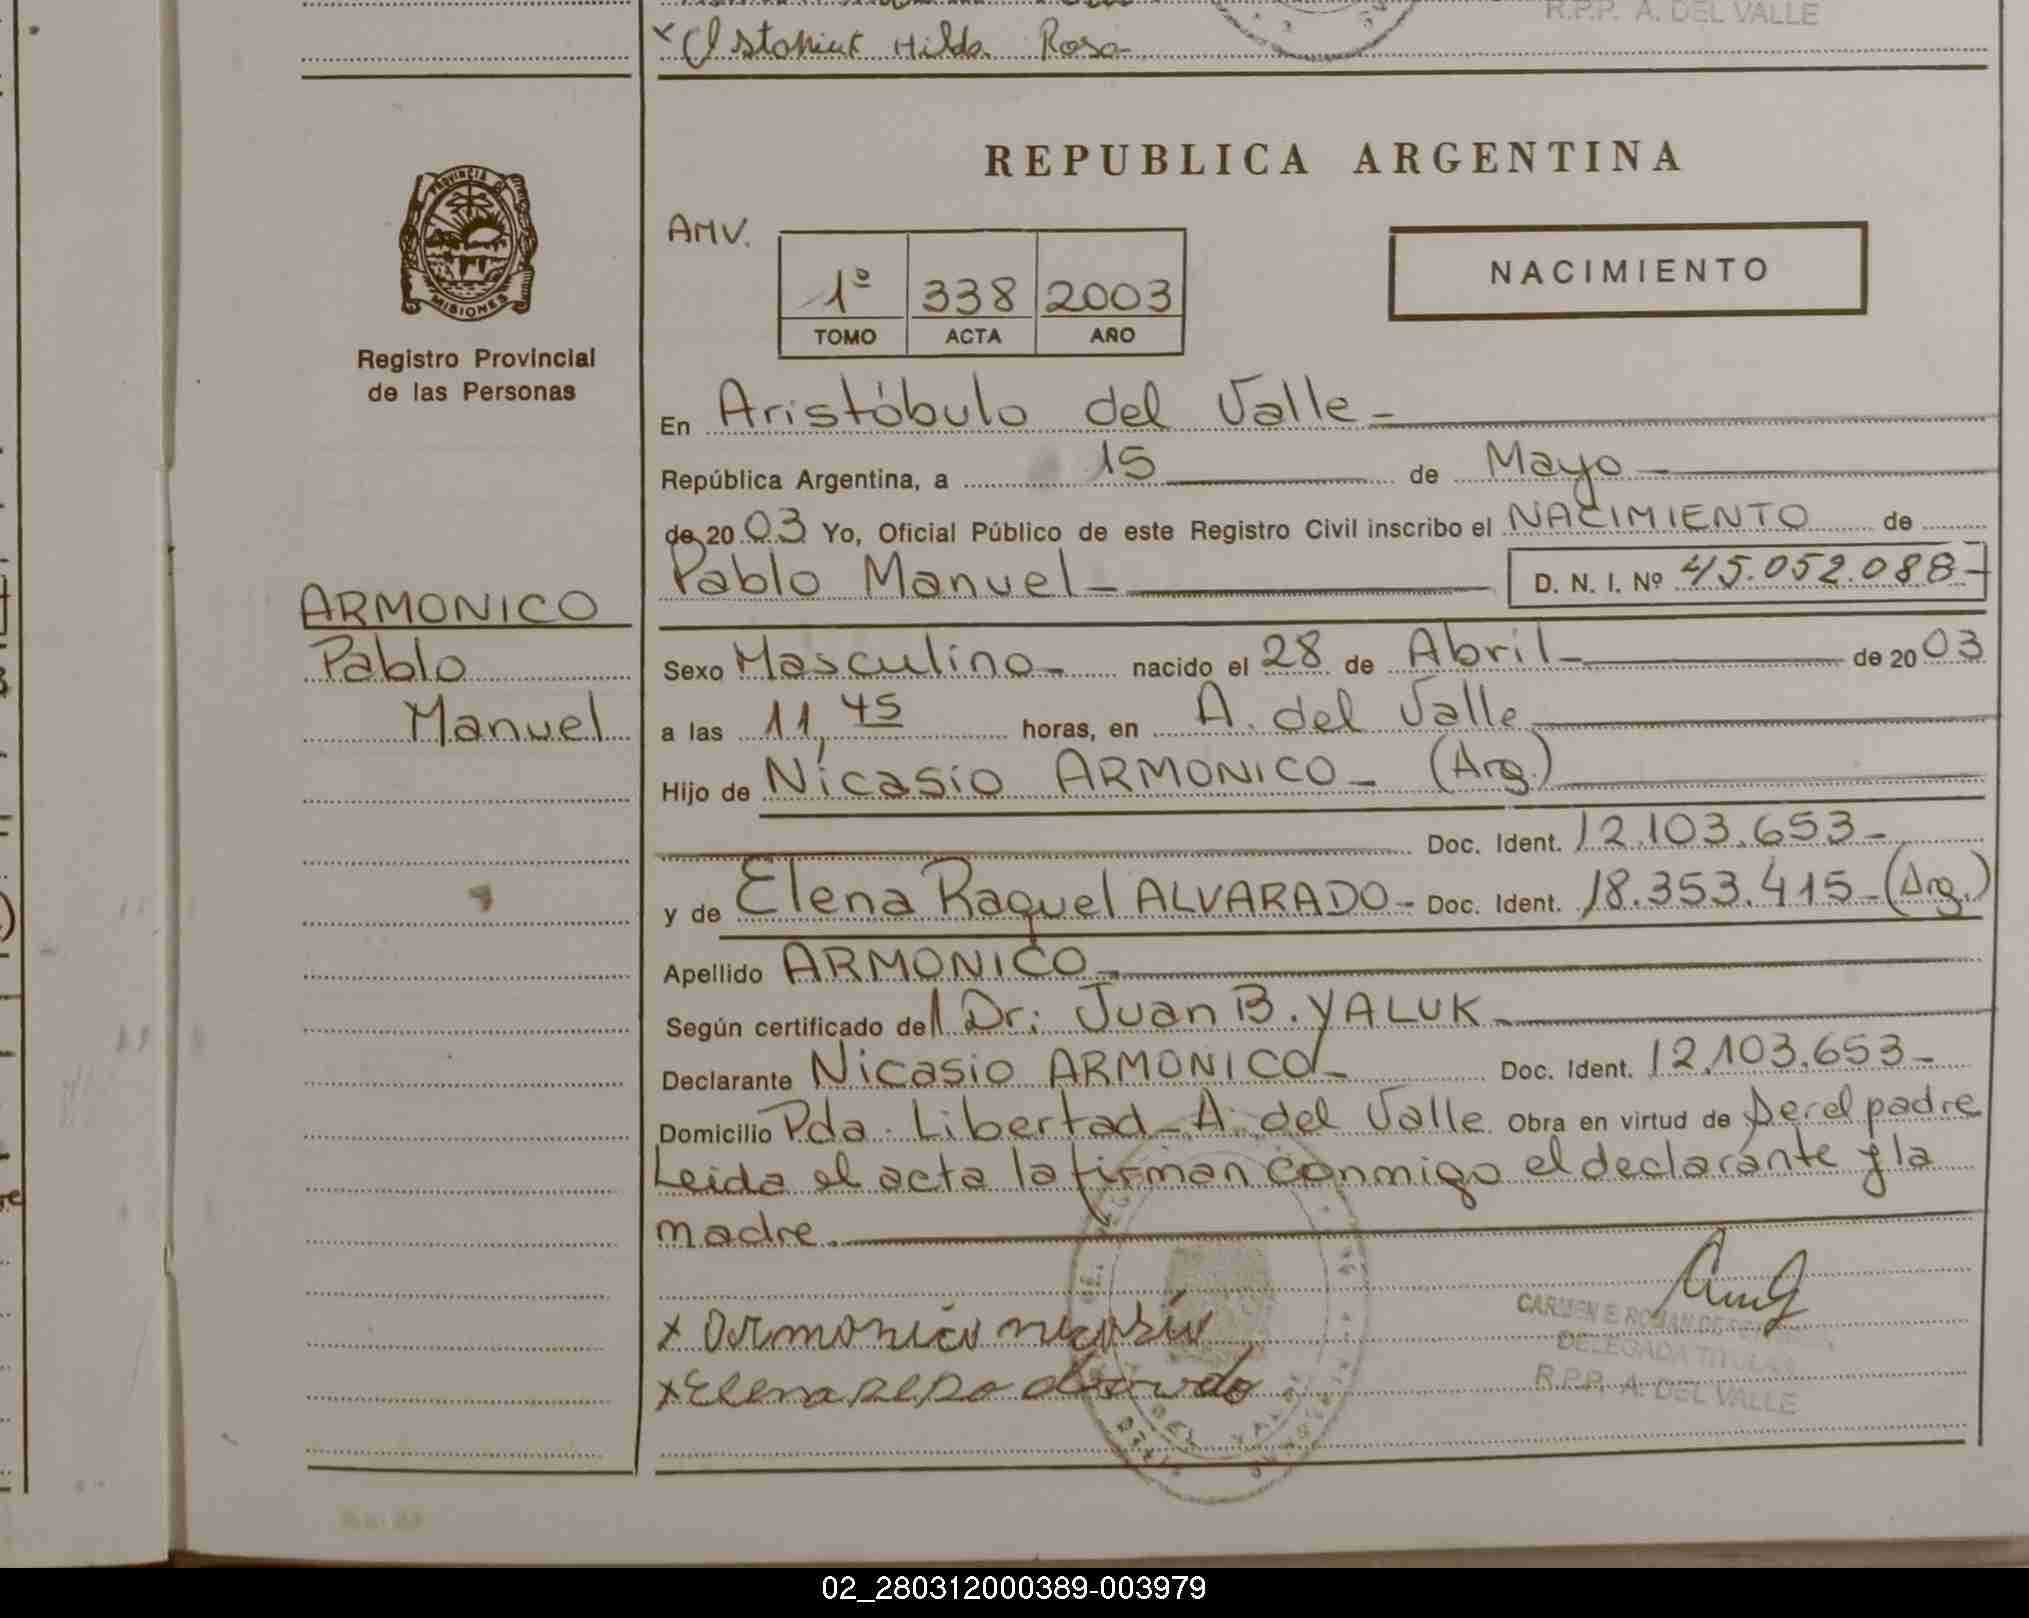 R.P.P. A. DEL VALLE
Hilda Rosa
REPUBLICA ARGENTINA
PROVINCIA DE
MISIONES
Registro Provincial
de las Personas
AMV.
1º 338 2003
TOMO ACTA AÑO
NACIMIENTO
En Aristóbulo del Valle -
República Argentina, a 15 de Mayo
de 20 03 Yo, Oficial Público de este Registro Civil inscribo el NACIMIENTO de
Pablo Manuel - D. N. I. Nº 45.052.088-
ARMONICO
Pablo
Manuel
Sexo Masculino - nacido el 28 de Abril - de 20 03
a las 11,45 horas, en A. del Valle
Hijo de Nicasio ARMONICO - (Arg.)
Doc. Ident. 12.103.653-
y de Elena Raquel ALVARADO - Doc. Ident. 18.353.415-(Arg.)
Apellido ARMONICO -
Según certificado del Dr: Juan B. YALUK -
Declarante Nicasio ARMONICO - Doc. Ident. 12.103.653-
Domicilio Pda. Libertad - A. del Valle Obra en virtud de Ser el padre
Leida el acta la firman conmigo el declarante y la
madre.
x Armonico nicasio
x Elena
CARMEN E. ROMAN DE
DELEGADA TITULAR
R.P.P. A. DEL VALLE
02_280312000389-003979